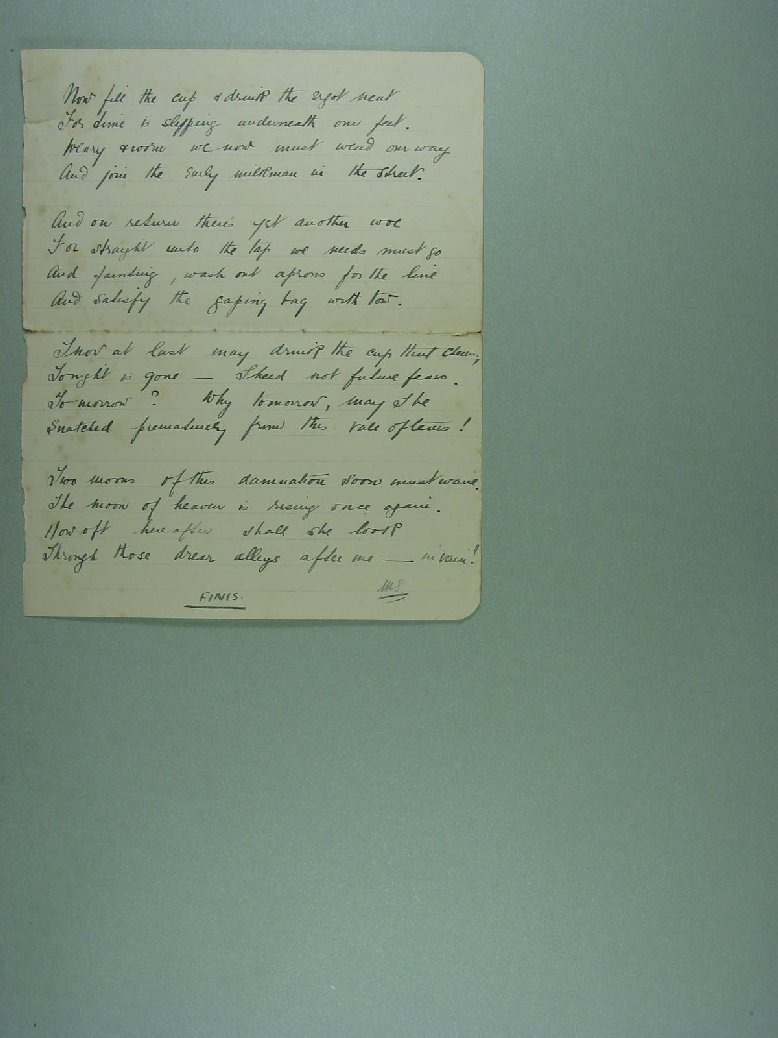 Now fill the cup & drink the ergot neat
For time is slipping underneath our feet.
Weary & worn we now must wend our way
And join the early milkman in the street.
And on return there's yet another woe
For straight unto the tap we needs must go
And fainting, wash out aprons for the line
And satisfy the gaping bag with tow.
I now at last may drink the cup that clears,
Tonight is gone — I heed not future fears.
To morrow? Why tomorrow, may I be
Snatched prematurely from this vale of tears!
Two moons of this damnation soon must wane.
The moon of heaven is rising once again.
How oft hereafter shall she look
Through those drear alleys after me — in vain!
FINIS.